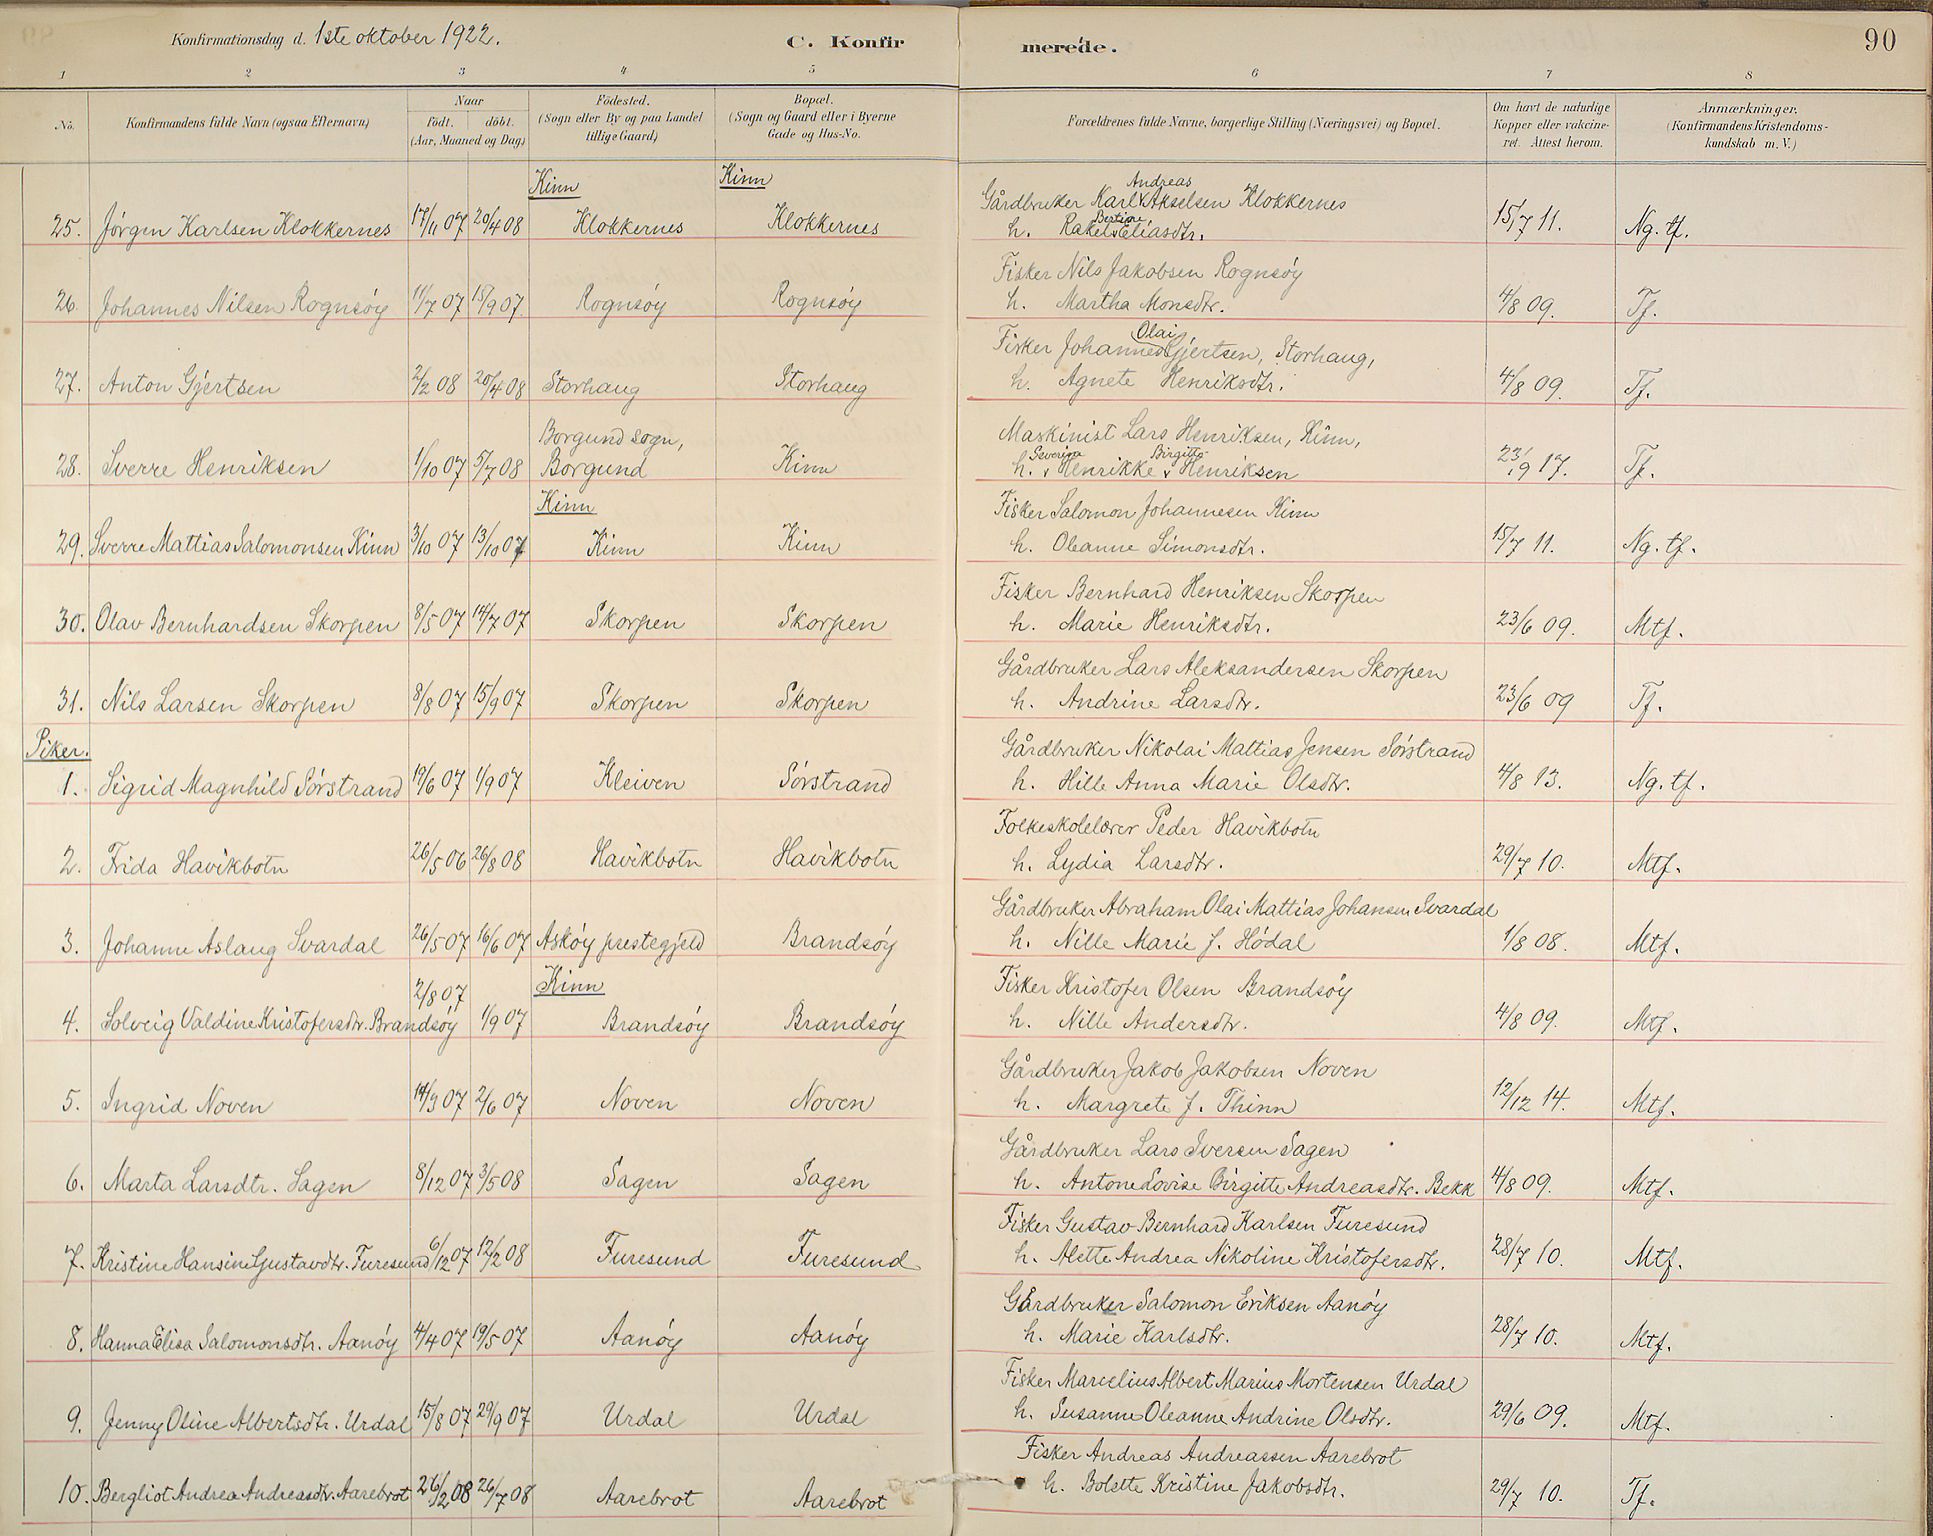 Konfirmationsdag d. 1ste oktober 1922. C. Konfirmerede. 90
1 2 3 4 5 6 7 8
No. Konfirmandens fulde Navn (ogsaa Efternavn) Naar født. døbt. (Aar, Maaned og Dag) Fødested. (Sogn eller By og paa Landet tillige Gaard) Bopæl. (Sogn og Gaard eller i Byerne Gade og Hus-No. Forældrenes fulde Navne, borgerlige Stilling (Næringsvei) og Bopæl. Om havt de naturlige Kopper eller vakcineret. Attest herom. Anmærkninger. (Konfirmandens Kristendomskundskab m. V.)
Kinn Kinn
25. Jørgen Karlsen Klokkernes 17/11 07 20/4 08 Klokkernes Klokkernes Gårdbruker Karl Andreas Akselsen Klokkernes
h. Rakel Bertine Eliasdtr. 15/7 11. Ng. tf.
26. Johannes Nilsen Rognsøy 11/7 07 15/9 07. Rognsøy Rognsøy Fisker Nils Jakobsen Rognsøy
h. Martha Monsdtr. 4/8 09. Tf.
27. Anton Gjertsen 2/2 08 20/4 08 Storhaug Storhaug Fisker Johannes Olai Gjertsen, Storhaug,
h. Agnete Henriksdtr. 4/8 09. Tf.
28. Sverre Henriksen 1/10 07 5/7 08 Borgund sogn, Borgund Kinn Maskinist Lars Henriksen, Kinn,
h. Severine Henrikke Birgitte Henriksen 23/9 17. Tf.
Kinn
29. Sverre Mattias Salomonsen Kinn 3/10 07 13/10 07 Kinn Kinn Fisker Salomon Johannesen Kinn
h. Oleanne Simonsdtr. 15/7 11. Ng. tf.
30. Olav Bernhardsen Skorpen 8/5 07 14/7 07 Skorpen Skorpen Fisker Bernhard Henriksen Skorpen
h. Marie Henriksdtr. 23/6 09. Mtf.
31. Nils Larsen Skorpen 8/8 07 15/9 07 Skorpen Skorpen Gårdbruker Lars Aleksandersen Skorpen
h. Andrine Larsdtr. 23/6 09 Tf.
Piker.
1. Sigrid Magnhild Sørstrand 19/6 07 1/9 07 Kleiven Sørstrand Gårdbruker Nikolai Mattias Jensen Sørstrand
h. Hille Anna Marie Olsdtr. 4/8 13. Ng. tf.
2. Frida Havikbotn 26/5 06 26/8 08 Havikbotn Havikbotn Folkeskolelærer Peder Havikbotn
h. Lydia Larsdtr. 29/7 10. Mtf.
3. Johanne Aslaug Svardal 26/5 07 16/6 07 Askøy prestegjeld Brandsøy Gårdbruker Abraham Olai Mattias Johansen Svardal
h. Nille Marie f. Hødal 1/8 08. Mtf.
Kinn
4. Solveig Valdine Kristofersdtr. Brandsøy 2/8 07 1/9 07 Brandsøy Brandsøy Fisker Kristofer Olsen Brandsøy
h. Nille Andersdtr. 4/8 09. Mtf.
5. Ingrid Noven 14/3 07 2/6 07 Noven Noven Gårdbruker Jakob Jakobsen Noven
h. Margrete f. Thinn 12/12 14. Mtf.
6. Marta Larsdtr. Sagen 8/12 07 3/5 08 Sagen Sagen Gårdbruker Lars Iversen Sagen
h. Antone Lovise Birgitte Andreasdtr. Bekk 4/8 09. Mtf.
7. Kristine Hansine Gustavdtr. Furesund 6/12 07 12/2 08 Furesund Furesund Fisker Gustav Bernhard Karlsen Furesund
h. Alette Andrea Nikoline Kristofersdtr. 28/7 10. Mtf.
8. Hanna Elisa Salomonsdtr. Aanøy 4/4 07 19/5 07 Aanøy Aanøy Gårdbruker Salomon Eriksen Aanøy
h. Marie Karlsdtr. 28/7 10. Mtf.
9. Jenny Oline Albertsdtr. Urdal 15/8 07 29/9 07 Urdal Urdal Fisker Marcelius Albert Marius Mortensen Urdal
h. Susanne Oleanne Andrine Olsdtr. 29/6 09. Mtf.
10. Bergliot Andrea Andreasdtr. Aarebrot 26/2 08 26/7 08 Aarebrot Aarebrot Fisker Andreas Andreassen Aarebrot
h. Bolette Kristine Jakobsdtr. 29/7 10. Tf.